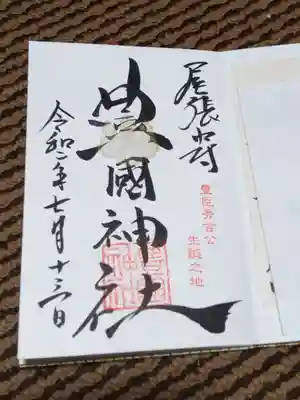 尾張中村
豊臣秀吉公
生誕之地
豊國神社
令和二年七月十三日